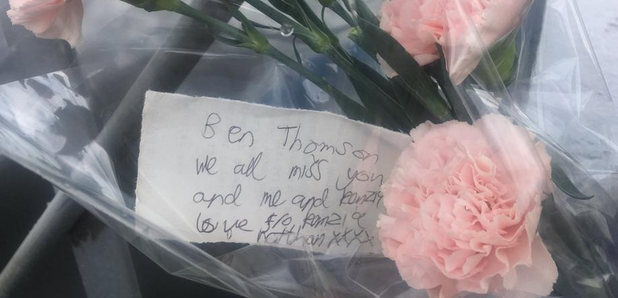 Ben Thomson
we all miss you
and me and
love f/o Kanzia
Katthan xxxx